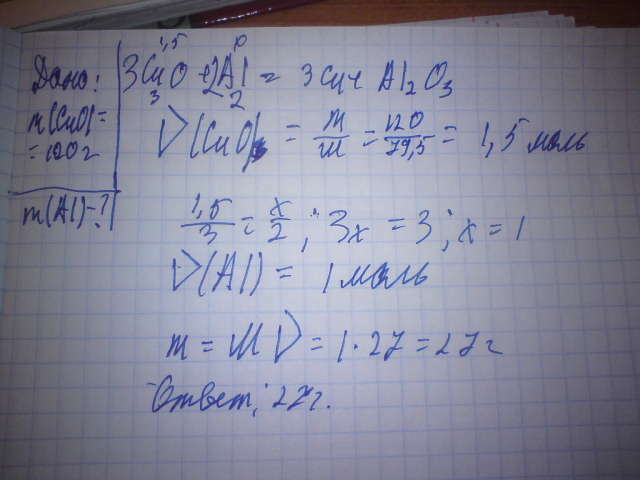 Дано:
m(CuO)=
=120г
m(Al)-?
1,5
3CuO + 2Al = 3Cu + Al2O3
3 2
ν(CuO) = m/M = 120/79,5 = 1,5 моль
1,5/3 = x/2 ; 3x = 3 ; x = 1
ν(Al) = 1 моль
m = Mν = 1·27 = 27г
Ответ: 27г.